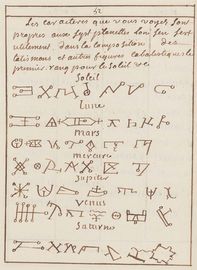 52
Les caracteres que vous voyez sont
propres aux sept planettes l'on s'en sert
utilement dans la composition des
talismans et autres figures cabalistiques le
premier rang pour le soleil &c
Soleil
Lune
mars
mercure
Jupiter
Venus
Saturne